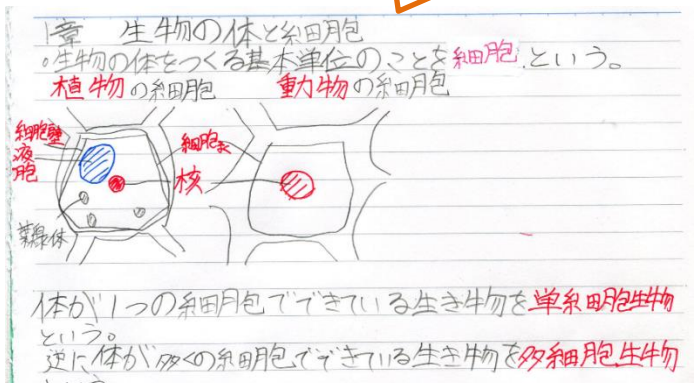 1章 生物の体と細胞
○生物の体をつくる基本単位のことを細胞という。
植物の細胞 動物の細胞
細胞壁
液胞
細胞膜
核
葉緑体
体が1つの細胞でできている生き物を単細胞生物
という。
逆に体が多くの細胞でできている生き物を多細胞生物
という